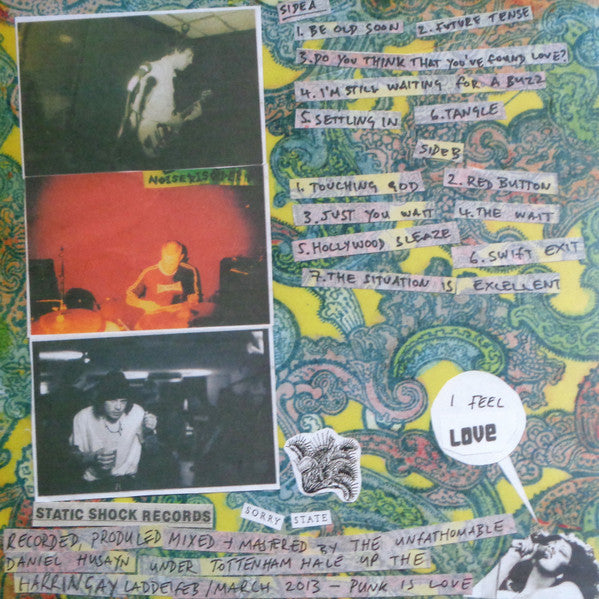 SIDE A
1. BE OLD SOON 2. FUTURE TENSE
3. DO YOU THINK THAT YOU'VE FOUND LOVE?
4. I'M STILL WAITING FOR A BUZZ
5. SETTLING IN 6. TANGLE
SIDE B
1. TOUCHING GOD 2. RED BUTTON
3. JUST YOU WAIT 4. THE WAIT
5. HOLLYWOOD SLEAZE 6. SWIFT EXIT
7. THE SITUATION IS EXCELLENT
I FEEL
LOVE
STATIC SHOCK RECORDS
SORRY STATE
RECORDED, PRODUCED MIXED + MASTERED BY THE UNFATHOMABLE
DANIEL HUSAYN UNDER TOTTENHAM HALE UP THE
HARRINGAY LADDER FEB/MARCH 2013 – PUNK IS LOVE